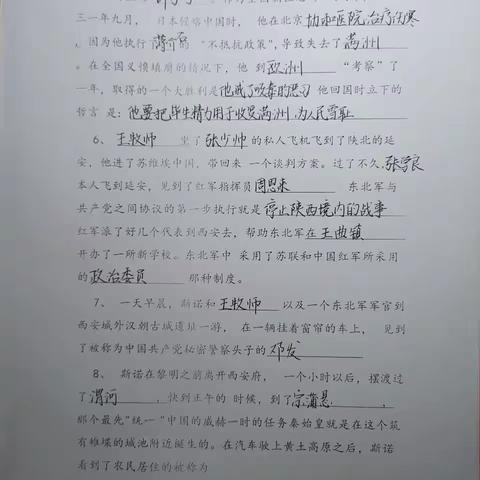 三一年九月， 日本侵略中国时， 他在北京协和医院治疗伤寒
，因为他执行 蒋介石 “不抵抗政策”，导致失去了满洲
。在全国义愤填膺的情况下，他 到 欧洲 “考察”了
一年，取得的一个大胜利是他戒了吸毒的恶习 他回国时立下的
誓言 是：他要把毕生精力用于收复满洲，为人民雪耻
6、 王牧师 坐了张少帅的私人飞机飞到了陕北的延
安，他进了苏维埃中国，带回来 一个谈判方案。过了不久，张学良
本人飞到延安，见到了红军指挥员周恩来 东北军与
共产党之间协议的第一步执行就是停止陕西境内的战事
红军派了好几个代表到西安去，帮助东北军在王曲镇
开办了一所新学校。东北军中 采用了苏联和中国红军所采用
的政治委员 那种制度。
7、 一天早晨，斯诺和王牧师 以及一个东北军军官到
西安城外汉朝古城遗址一游， 在一辆挂着窗帘的车上， 见到
了被称为中国共产党秘密警察头子的 邓发
8、 斯诺在黎明之前离开西安府， 一个小时以后，摆渡过
了 渭河 ，快到正午的 时候，到了宗蒲县 ，
那个最先“统一”中国的威赫一时的任务秦始皇就是在这个筑
有雄堞的城池附近诞生的。在汽车驶上黄土高原之后，斯诺
看到了农民居住的被称为